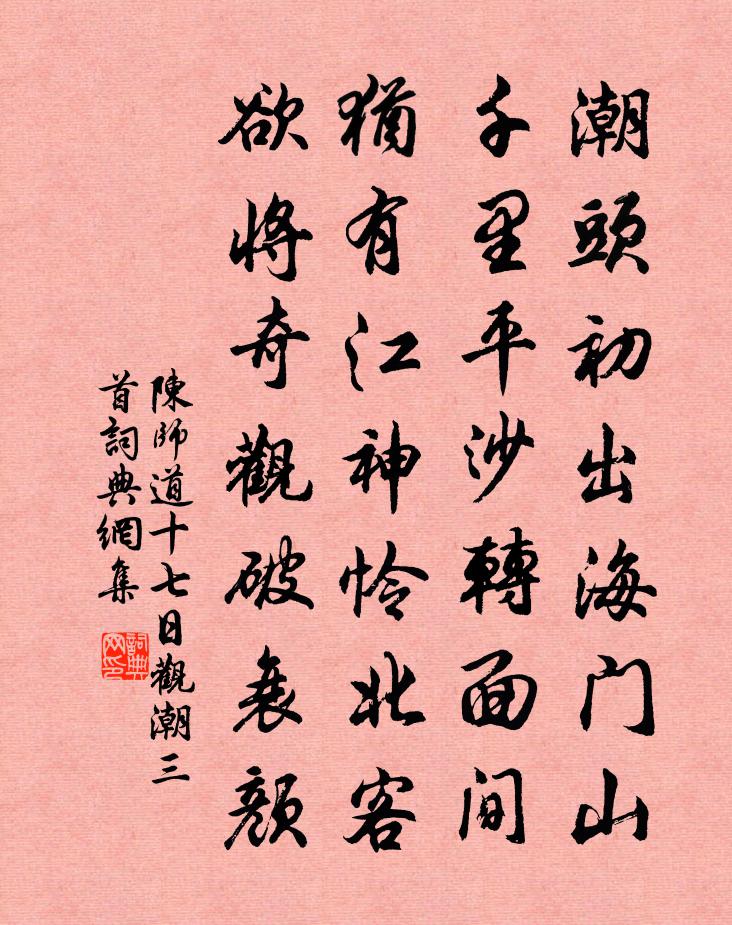 潮頭初出海门山
千里平沙轉面间
猶有江神怜北客
欲將奇觀破衰顔
陳師道十七日觀潮三
首詞典網集
詞典
网印